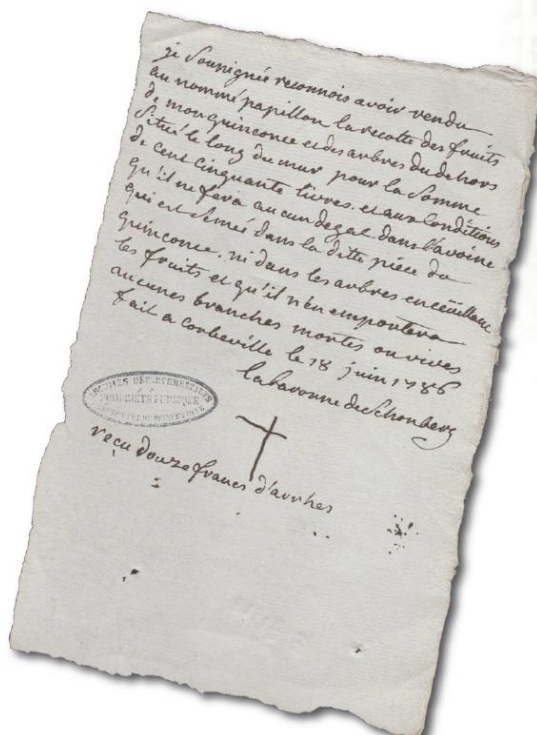 je Soussignée reconnois avoir vendu
au nommé papillon la recolte des fruits
de mon quinconce et des arbres du dehors
Situé le long du mur pour la Somme
de cent cinquante livres. et aux Conditions
qu'il ne fera aucun degat dans l'avoine
qui est Semée dans la ditte piece du
quinconce. ni dans les arbres en ceuillant
les fruits et qu'il n'en emportera
aucunes branches mortes ou vives
fait a corbeville le 18 juin 1786
la baronne de Schonberg
ARCHIVES DÉPARTEMENTALES
recu douze francs d'arrhes